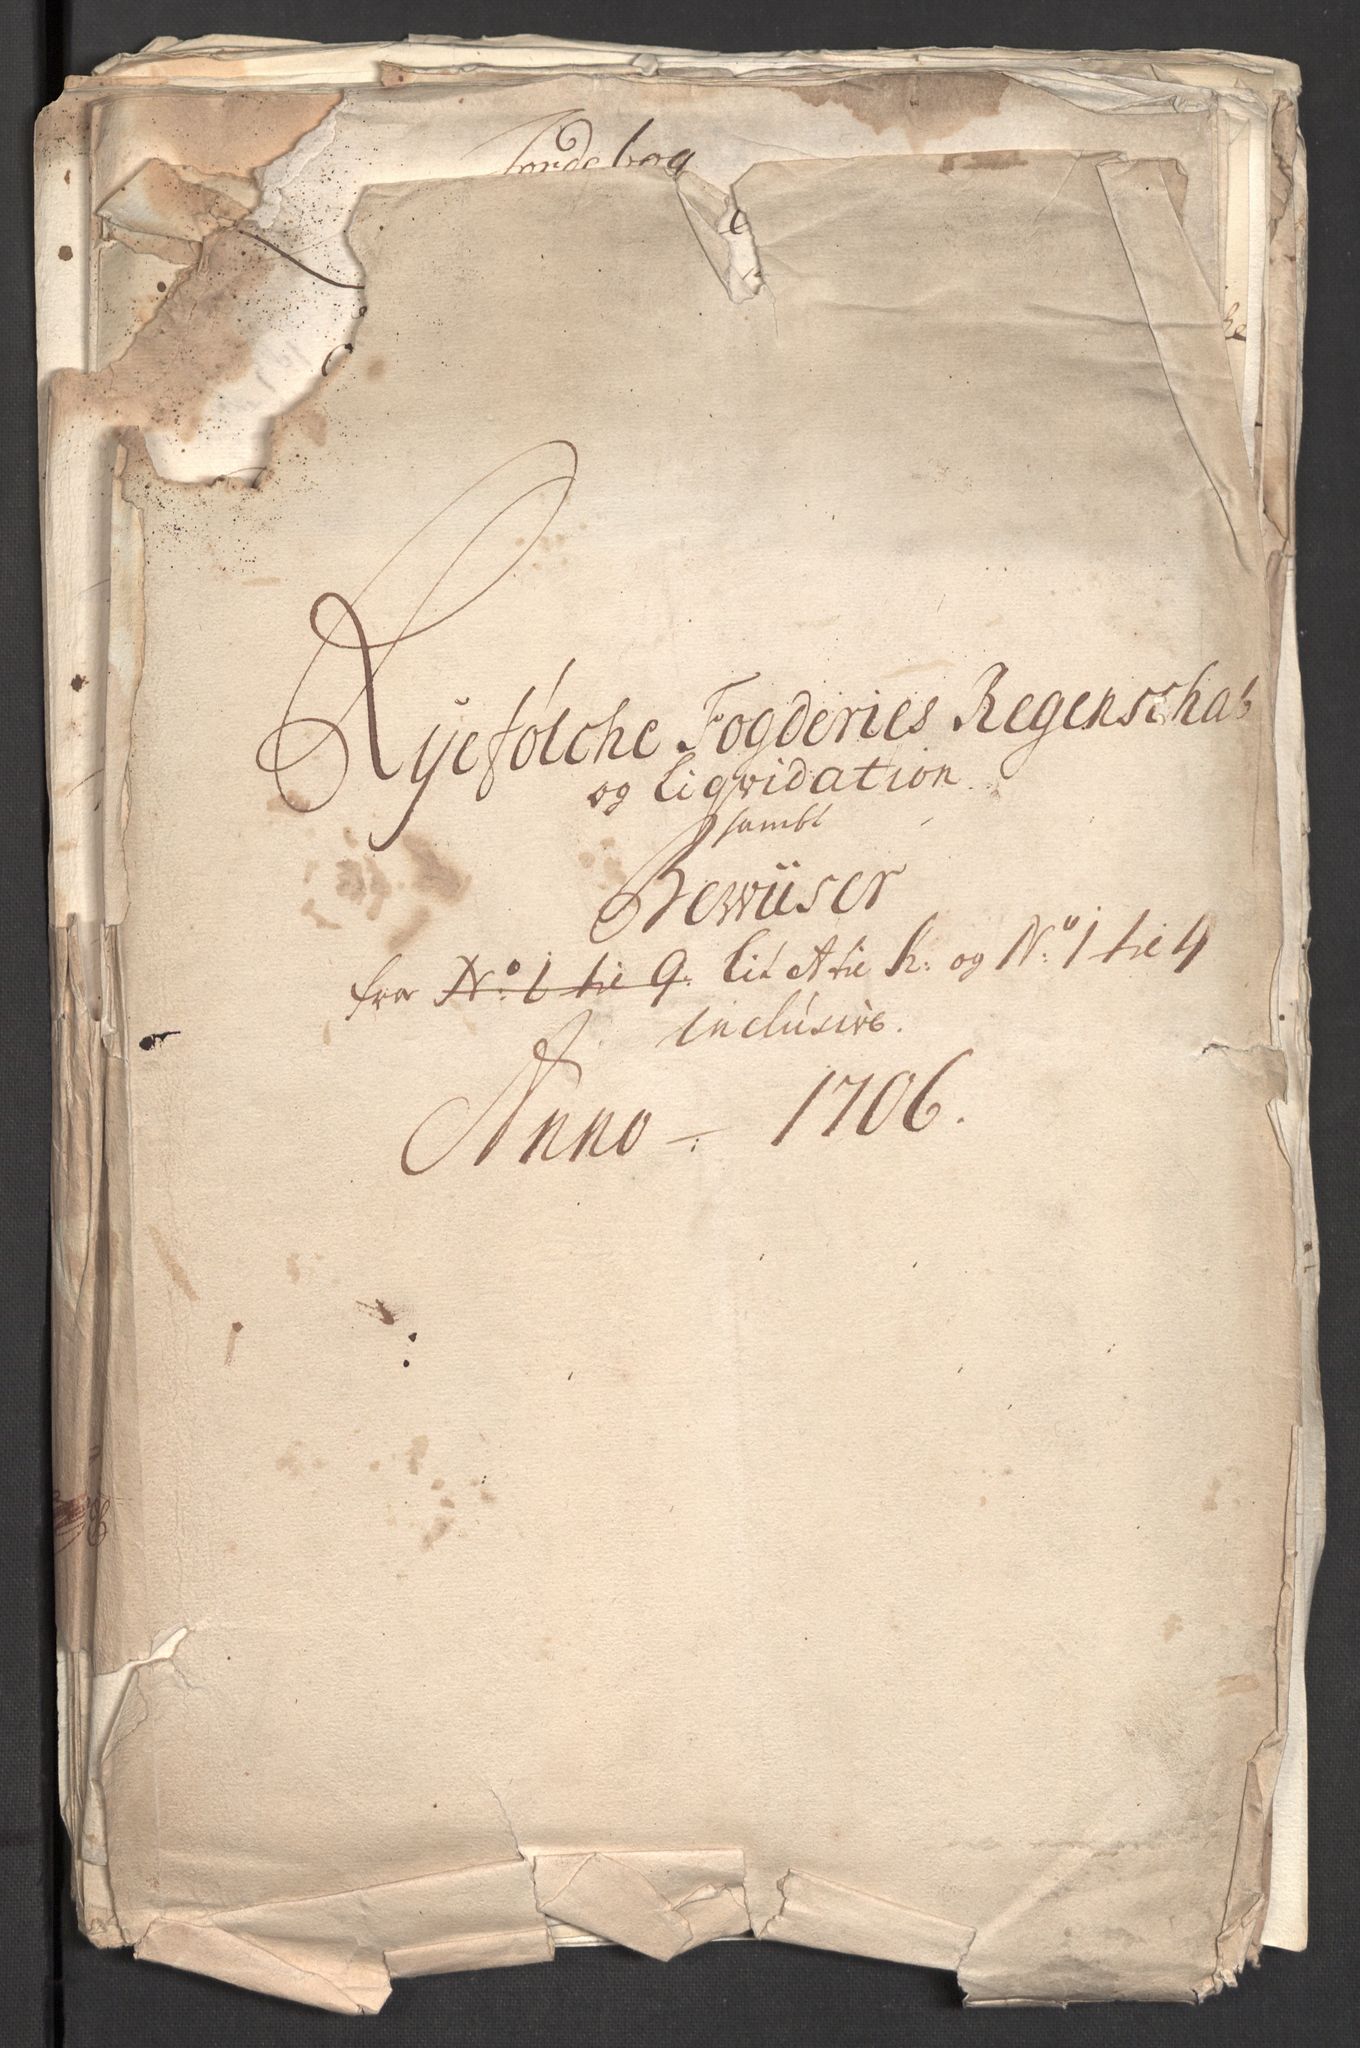 Jordebog
Ryefølche Fogderies Regenschab
og liqvidation
sambt
Bewiiser
fra N:o 1 til 9: lit A til k: og N:o 1 til 4
inclusive.
Anno - 1706.